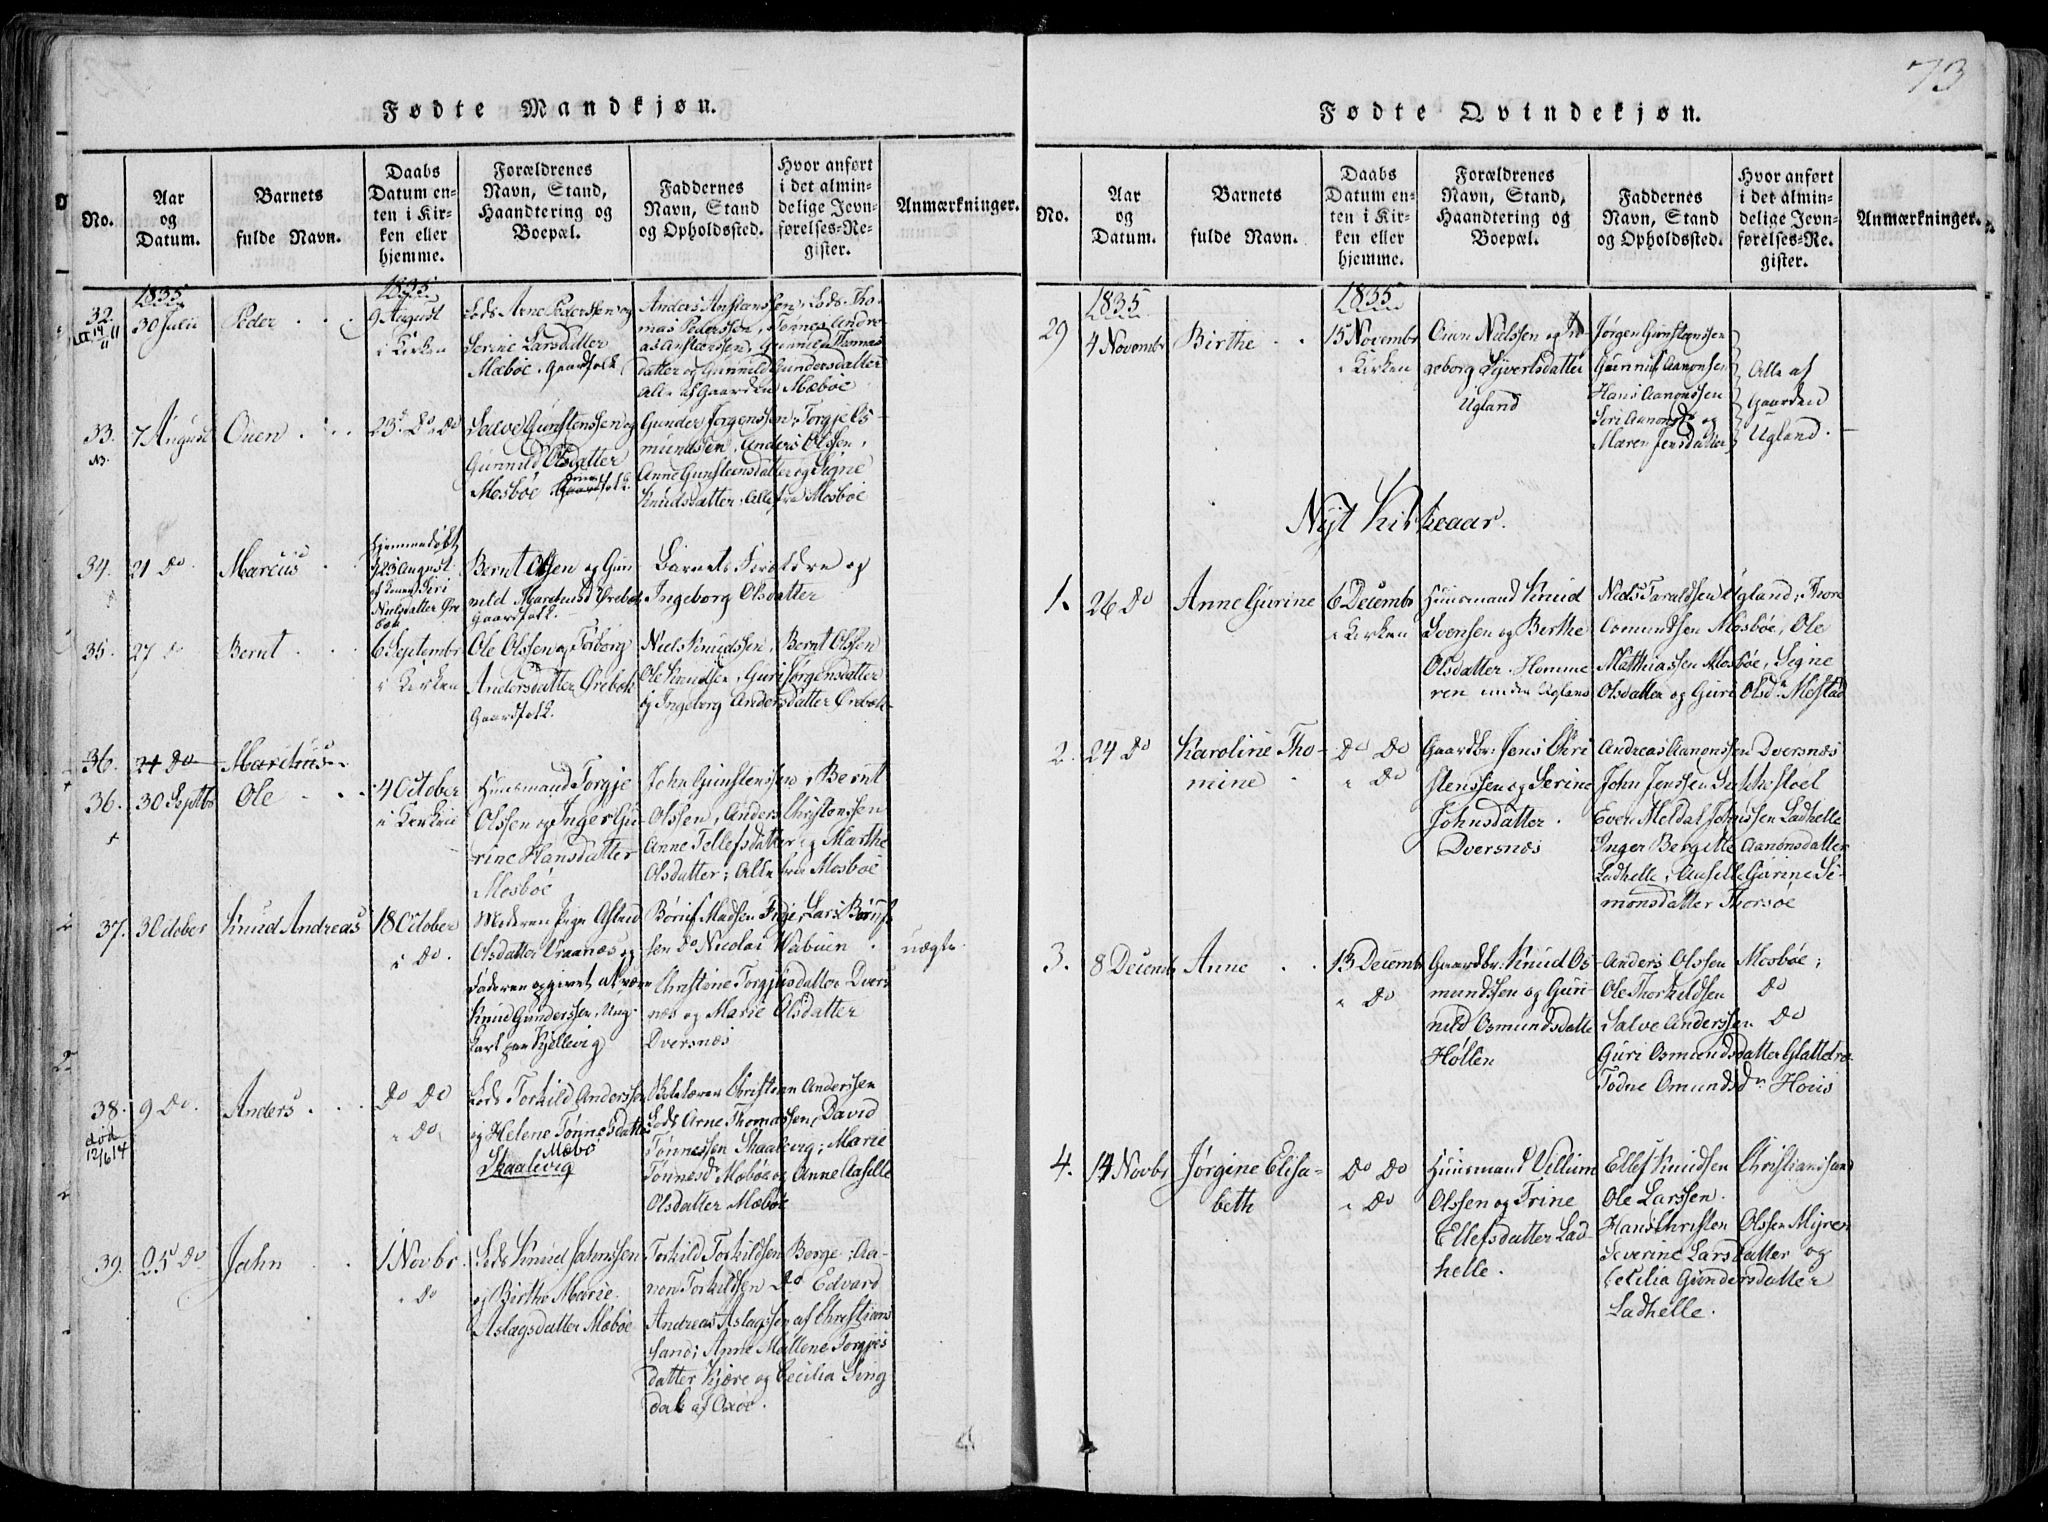 73
Fødte Mandkjøn.
No.
Aar
og
Datum.
Barnets
fulde Navn.
Daabs
Datum en-
ten i Kir-
ken eller
hjemme.
Forældrenes
Navn, Stand,
Haandtering og
Boepæl.
Faddernes
Navn, Stand
og Opholdssted.
Hvor anført
i det almin-
delige Jevn-
førelses-Re-
gister.
Anmærkninger.
32.
1835
30 Julii
Peder
1835
9 August
i Kirken
Lods Arne Pederssen og
Serine Larsdatter
Mæbøe. Gaardfolk
Anders Anstenssen, Lods Tho-
mas Pederssen, Tønnes Andre-
as Anstenssen, Gunnild Thomas
datter og Gunnild Gundersdatter
Alle af Gaarden Mæbøe
33.
7 August
Ouen
23 Do Do
Salve Gunstenssen og
Gunnild Olsdatter
Mosbøe Gaardfolk.
Gunder Jørgenssen, Torgje Os-
mundsen, Anders Olssen,
Anne Gunsteensdatter og Signe
Knudsdatter, Alle fra Mosbøe
34.
21 Do
Marcus
Hjemmedøbt
23 August
af Seri
Nielsdatter Øre
bek
Bernt Olsen og Gun
nild Ørebek
Gaardfolk.
Barnets Forældre og
Ingeborg Olsdatter
35.
27 Do
Bernt
6 Septembr
i Kirken
Ole Olssen og Torborg
Andersdatter Ørebek
Gaardfolk.
Niels Knudssen, Bernt Olssen
Ole Knudsen, Guri Jørgensdatter
og Ingeborg Andersdatter Ørebek
36.
21 Do
Marckus
36.
30 Septbr
Ole
4 October
i Kirken
Huusmand Torgje
Olssen og Inger Gu-
rine Hansdatter
Mosbøe
John Gunstenssen, Bernt
Olssen, Anders Christenssen
Anne Tellefsdatter og Marthe
Olsdatter; Alle fra Mosbøe
37.
3 October
Knud Andreas
18 October
i Do.
Moderen Pige Astrid
Olsdatter Vraanæs og
Faderen opgivet at være
Knud Gunderssen, Ung-
karl paa Kjellevig
Børuf Madsen Fige, Lars Børuf-
sen Do Nicolai Wabuen
Christine Torgjusdatter Dvers
næs og Marie Olsdatter
Dversnæs
uægte.
38.
død
12/6 14
9 Do.
Anders
Do Do
i Do
Lods Torkild Anderssen
og Helene Tønnesdatter
Mæbø
Skaalevig
Skolelærer Christian Anderssen
Lods Arne Thomassen, David
Tønnessen Skaalevig; Marie
Tønnesd. Mæbøe og Anne Aasille
Olsdatter Mæbøe
39.
25 Do
Jahn
1 Novbr.
i Do
Lods Knud Jahnssen
og Birthe Marie
Aslagsdatter Mæbøe
Torkild Torkildsen Berge; Aa-
non Torkildsen Do Edvard
Andreas Aslagssen af Christians
sand; Anne Mallene Torgjes
datter Kjære og Cecilia Sing
dal af Oxøe.
Fødte Qvindekjøn.
No.
Aar
og
Datum.
Barnets
fulde Navn.
Daabs
Datum en-
ten i Kir-
ken eller
hjemme.
Forældrenes
Navn, Stand,
Haandtering og
Boepæl.
Faddernes
Navn, Stand
og Opholdssted.
Hvor anført
i det almin-
delige Jevn-
førelses-Re-
gister.
Anmærkninger.
29
1835
4 Novembr
Birthe
1835
15 Novembr
i Kirken
Ouen Nielssen og In-
geborg Syvertsdatter
Ugland
Jørgen Gunsteenssen
Gunnuf Aanonsen
Hans Aanonssen
Seri Aanonsdr og
Maren Jensdatter
Alle af
Gaarden
Ugland.
Nyt Kirkeaar.
1.
26 Do
Anne Gurine
6 Decembr
i Kirken
Huusmand Knud
Svensen og Berthe
Olsdatter. Homme
ren under Ugland
Niels Taraldsen Ugland, Thore
Osmundsen Mosbøe, Ole
Matthiassen Mosbøe, Signe
Olsdatter og Guri Olsdr Mestad
2.
24 Do
Karoline Tho-
mine
Do Do
i Do
Gaardbr: Jens Chri
stenssen og Serine
Johnsdatter.
Dversnæs
Andreas Aanonssen Dversnæs
John Jenssen
Even Meldal Johnssen Ladhelle
Inger Bergitte Aanonsdatter
Ladhelle; Aasille Gurine Si-
monsdatter Thorsøe
3.
8 Decembr
Anne
13 Decembr
i Do
Gaardbr: Knud Os-
mundssen og Gun-
nild Osmundsdatter
Høllen
Anders Olssen Mosbøe;
Ole Thorkildsen Do
Salve Anderssen Do
Guri Osmundsdatter
Todne Omundsdr
4.
14 Novbr
Jørgine Elisa-
beth
Do Do
i Do
Huusmand Villum
Olssen og Trine
Ellefsdatter Lad-
helle.
Ellef Knudsen Christiansand
Ole Larssen.
Hans Christen Olssen Myren
Severine Larsdatter og
Cecilia Gundersdatter
Ladhelle.